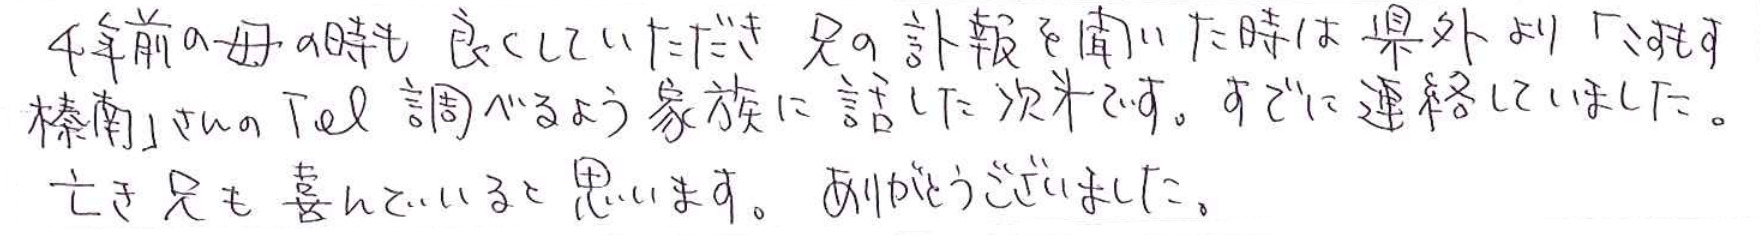 4年前の母の時も 良くしていただき 兄の訃報を聞いた時は 県外より「こすもす
榛南」さんのTel 調べるよう家族に話した次第です。すでに連絡していました。
亡き兄も喜んでいると思います。 ありがとうございました。